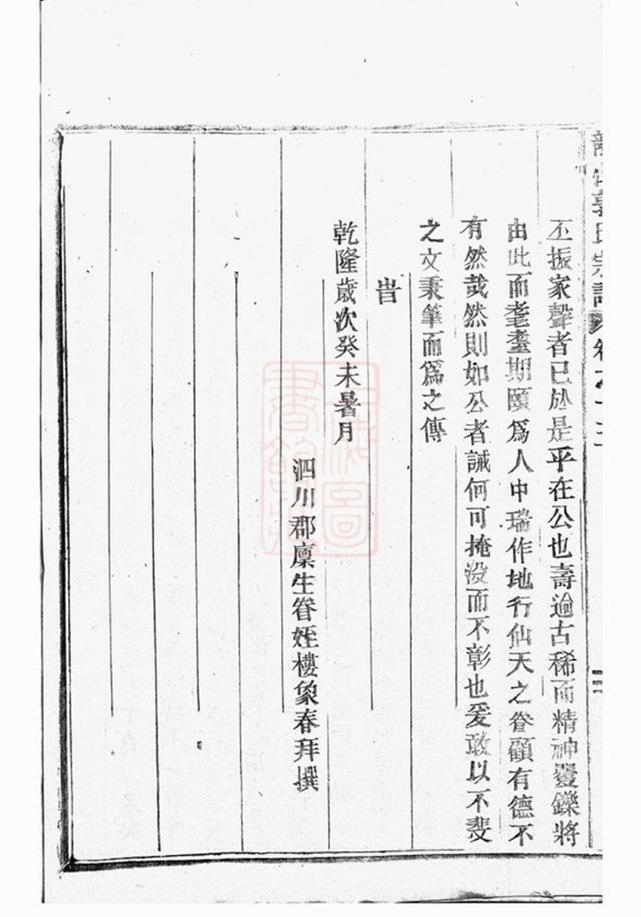 郭氏宗譜 卷之十三
丕振家聲者已於是乎在公也壽逾古稀而精神矍鑠將
由此而耄耋期頤爲人中瑞作地行仙天之眷顧有德不
有然哉然則如公者誠何可掩没而不彰也爰敢以不斐
之文秉筆而爲之傳
旹
乾隆歲次癸未暑月
泗川郡廩生眷姪樓象春拜撰